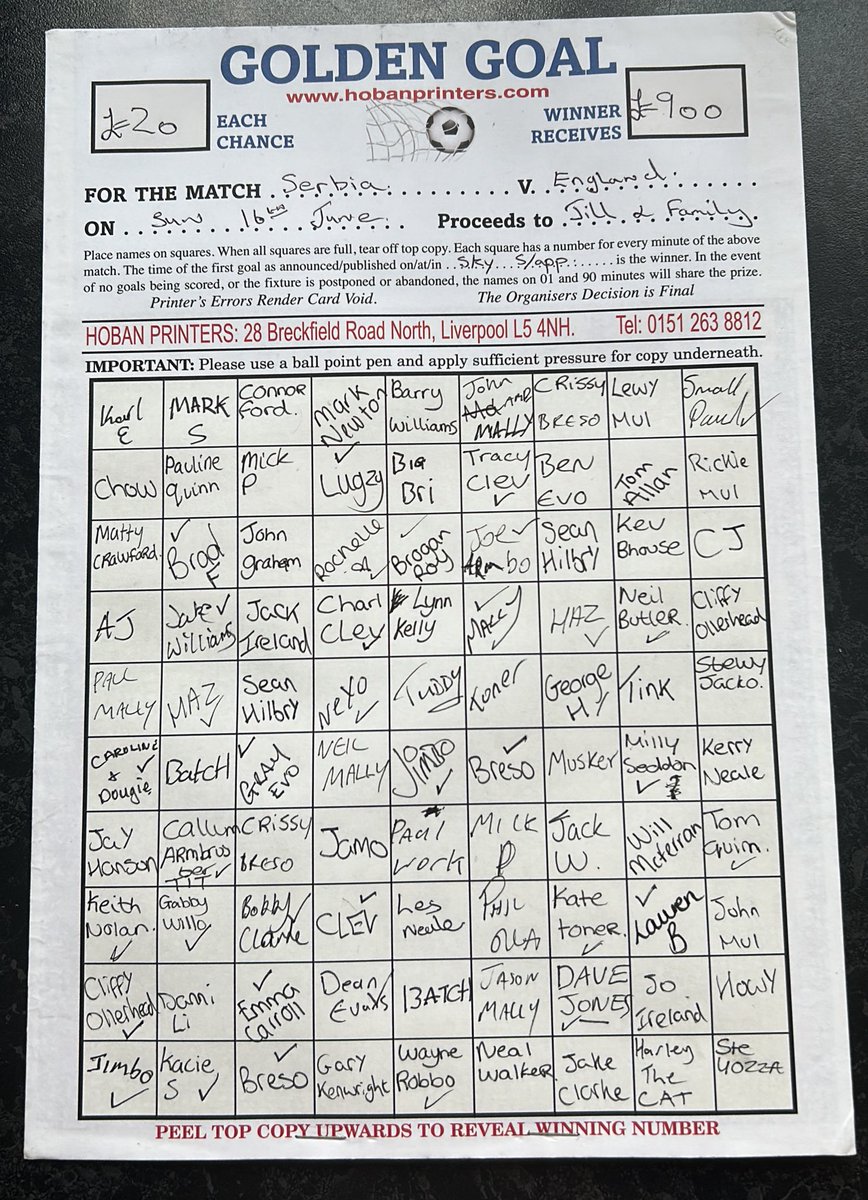 GOLDEN GOAL
www.hobanprinters.com
£20
EACH
CHANCE
WINNER
RECEIVES
£900
FOR THE MATCH . Serbia . V. England.
ON . Sun 16th June . Proceeds to . Jill & Family.
Place names on squares. When all squares are full, tear off top copy. Each square has a number for every minute of the above
match. The time of the first goal as announced/published on/at/in . Sky S/app . is the winner. In the event
of no goals being scored, or the fixture is postponed or abandoned, the names on 01 and 90 minutes will share the prize.
Printer's Errors Render Card Void. The Organisers Decision is Final
HOBAN PRINTERS: 28 Breckfield Road North, Liverpool L5 4NH. Tel: 0151 263 8812
IMPORTANT: Please use a ball point pen and apply sufficient pressure for copy underneath.
Karl
E
MARK
S
Connor
Ford.
Mark
Newton
Barry
Williams
John
MALLY
CRissy
BRESO
Lewy
MUL
Small
Paul
Chow
Pauline
Quinn
Mick
P
Lugzy
Big
Bri
Tracy
Clev
Ben
Evo
Tom
Allan
Richie
MUL
Matty
CRAWFORD.
Brad
F
John
graham
Rochelle
Brogan
Roy
Joe
ARMbo
Sean
Hilbry
Kev
Bhouse
CJ
AJ
Jake
Williams
Jack
Ireland
Charl
CLEV
Lynn
Kelly
MALLY
HAZ
Neil
Butler.
Cliffy
Ollerhead
PAUL
MALLY
MAZ
Sean
Hilbry
NEYO
TUDDY
Toner
George
H
Tink
Stewy
Jacko.
CAROLINE
&
Dougie
BATCH
GRAY
EVO
NEIL
MALLY
JO
JIMBO
Breso
Musker
Milly
Seddon
Kerry
Neale
Jay
Hanson
Callum
ARMBrus
ber
TIT
CRissy
BRESO
Jamo
Paul
Work
MICK
P
Jack
W.
Will
McTerran
Tom
Quim.
Keith
Nolan.
Gabby
Willo
Bobby
Clarke
CLEV
Les
Neale
PHIL
OLLA
Kate
toner.
Lauren
B
John
MUL
Cliffy
Ollerhead
Dami
Li
Emma
Carroll
Dean
Evans
BATCH
JASON
MALLY
DAVE
JONES
Jo
Ireland
Howy
Jimbo
Kacie
S
Breso
Gary
Kenwright
Wayne
Robbo
Neal
Walker
Jake
Clarke
Harley
The
CAT
Ste
YOZZA
PEEL TOP COPY UPWARDS TO REVEAL WINNING NUMBER